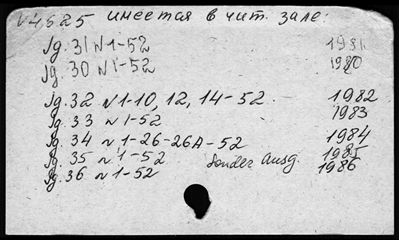 V4525 имеется в чит. зале:
Jg. 31 N 1-52 1981
Jg. 30 N 1-52 1980
Jg. 32 N 1-10, 12, 14-52 1982
Jg. 33 N 1-52 1983
Jg. 34 N 1-26-26A-52 1984
Jg. 35 N 1-52 Sonder Ausg. 1985
Jg. 36 N 1-52 1986